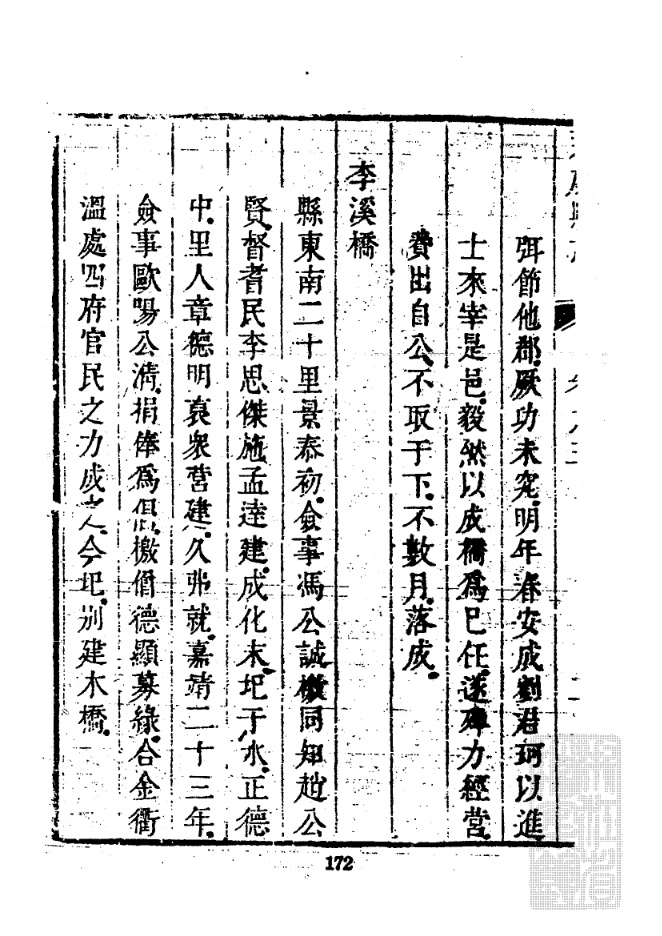 弭節他郡厥功未究明年春安成劉君珂以進
士來宰是邑毅然以成橋爲己任遂殫力經營
費出自公不取于下不數月落成
李溪橋
縣東南二十里景泰初僉事馮公誠檄同知趙公
賢督耆民李思傑施孟達建成化末圮于水正德
中里人章德明裒衆營建久弗就嘉靖二十三年
僉事歐陽公清捐俸爲倡檄僧德顯募緣合金衢
溫處四府官民之力成之今圮別建木橋
172